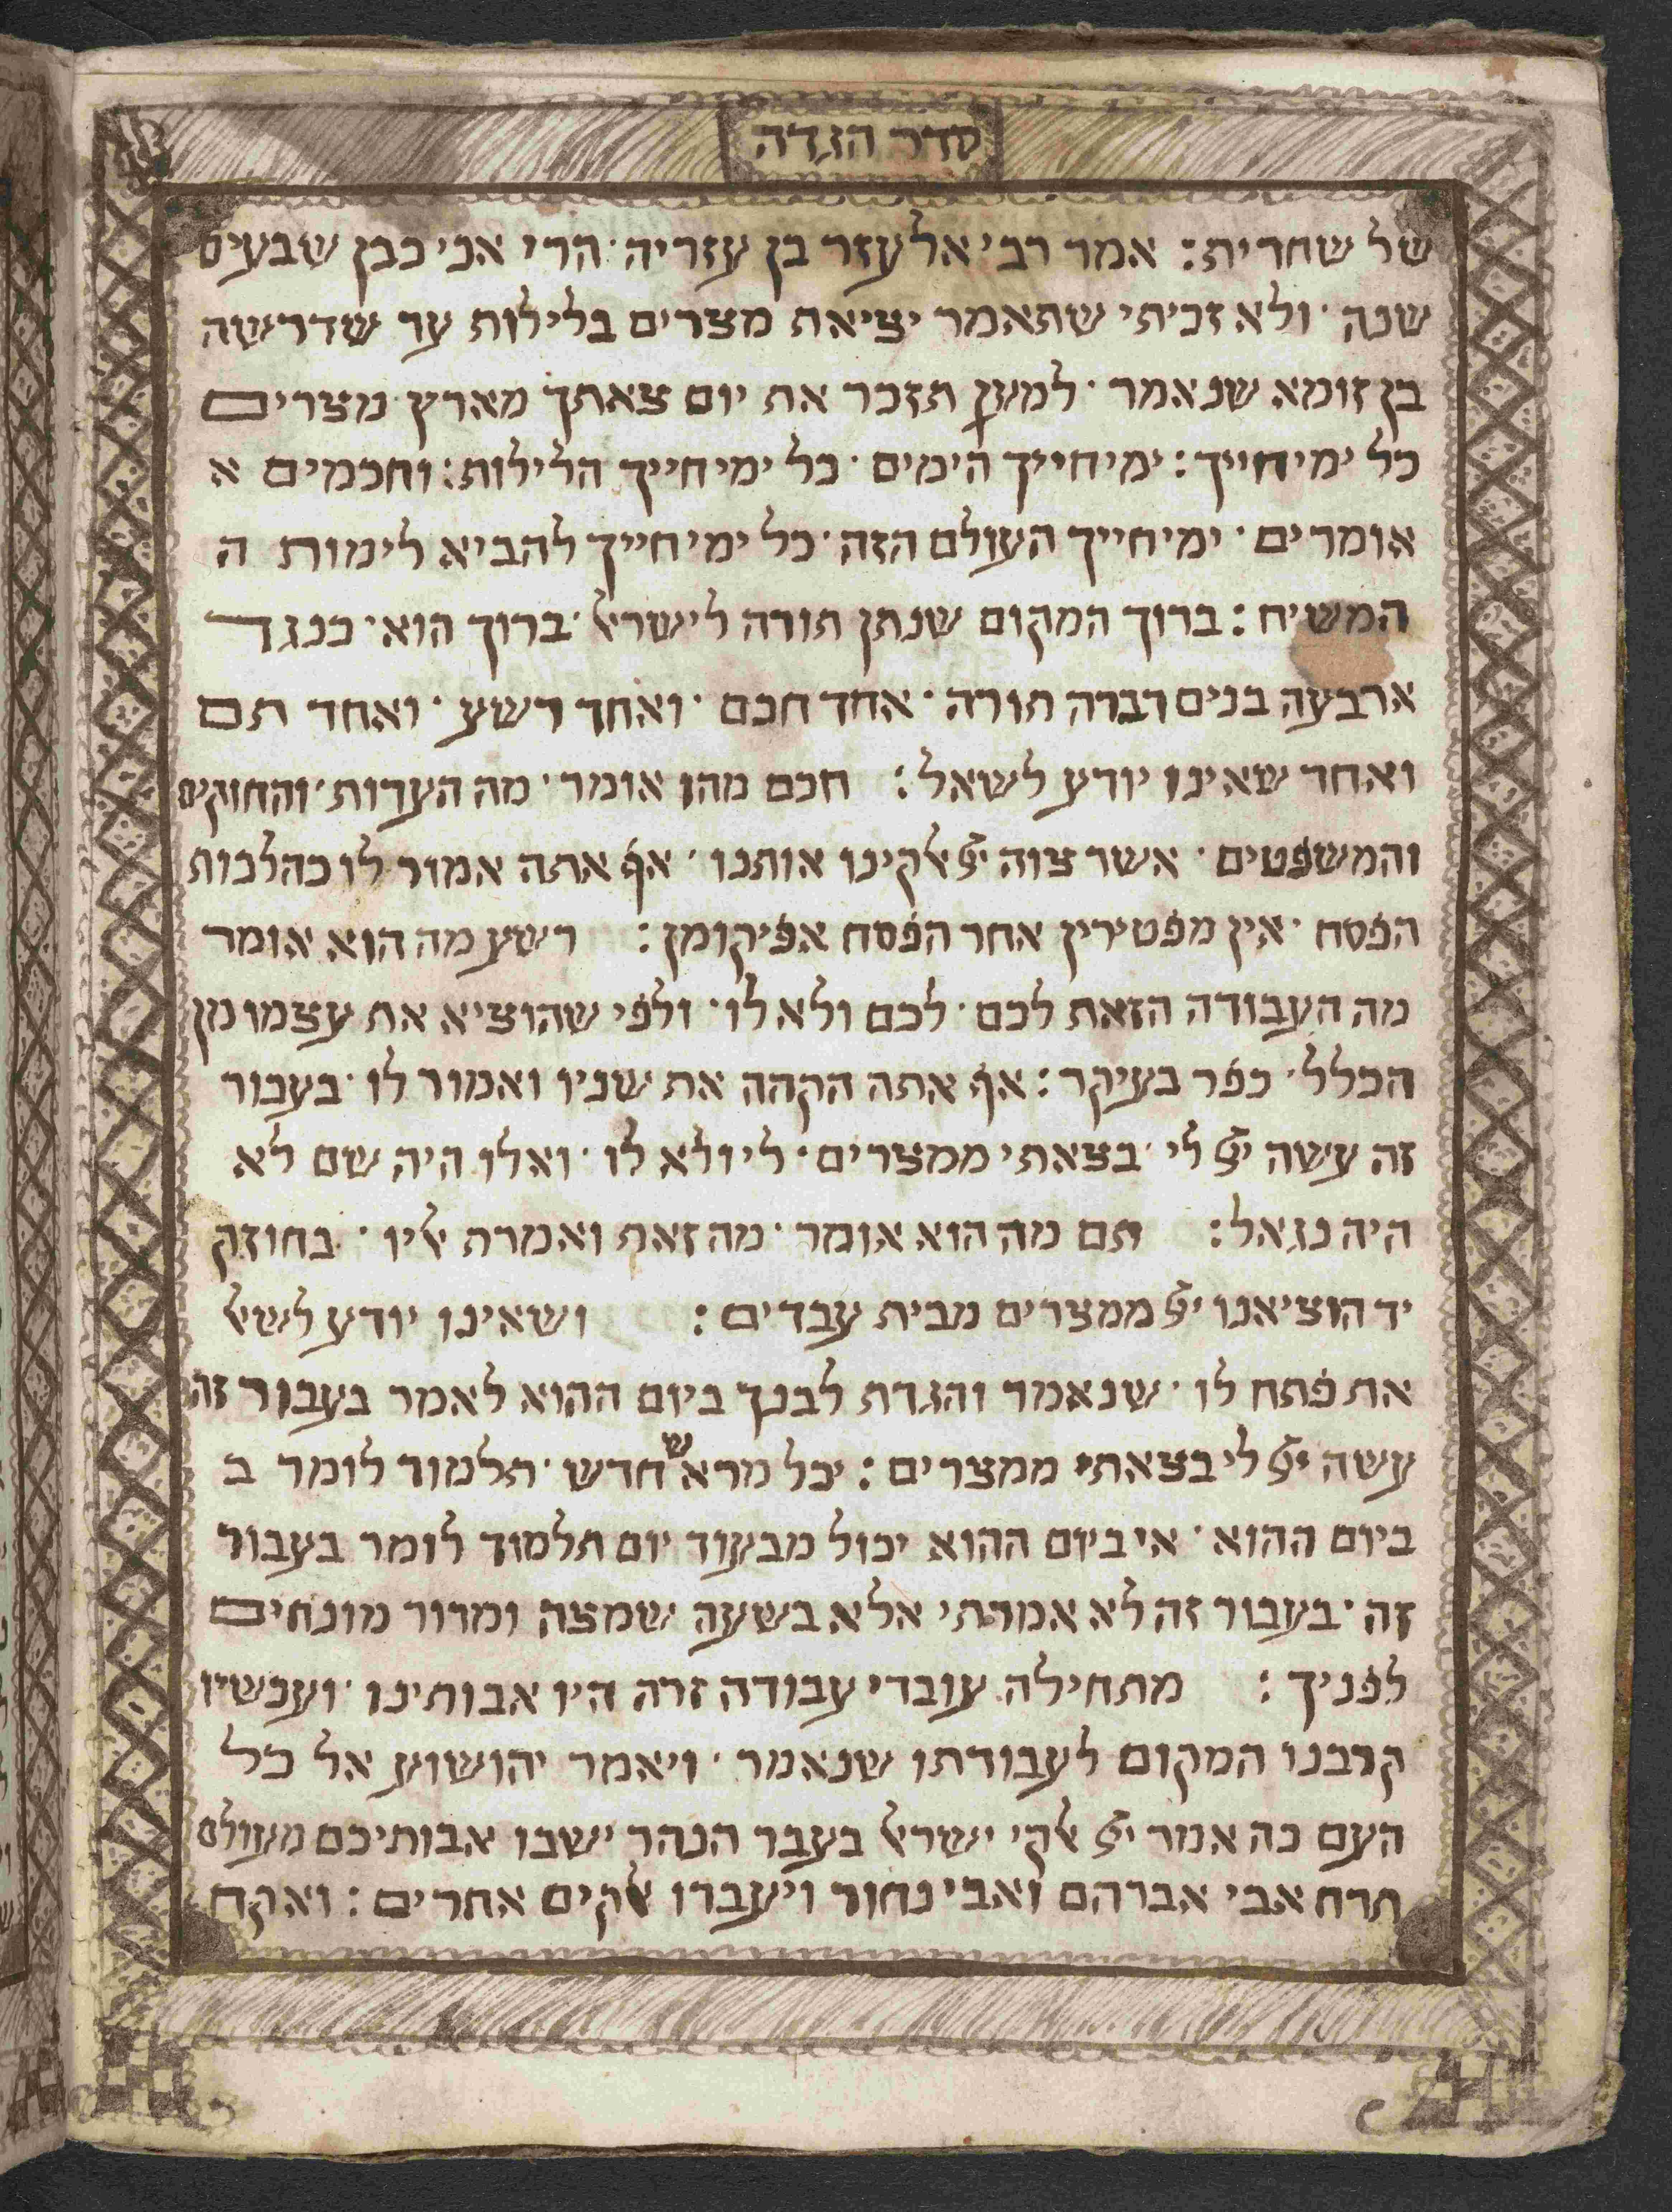 סדר הגדה
של שחרית: אמר רבי אלעזר בן עזריה· הרי אני כבן שבעים
שנה· ולא זכיתי שתאמר יציאת מצרים בלילות עד שדרשה
בן זומא שנאמר· למען תזכר את יום צאתך מארץ מצרים
כל ימי חייך: ימי חייך הימים· כל ימי חייך הלילות: וחכמים א
אומרים· ימי חייך העולם הזה· כל ימי חייך להביא לימות ה
המשיח: ברוך המקום שנתן תורה לישראל· ברוך הוא· כנגד
ארבעה בנים דברה תורה· אחד חכם· ואחד רשע· ואחד תם
ואחד שאינו יודע לשאל: חכם מהו אומר· מה העדות· והחוקים
והמשפטים· אשר צוה יי אלקינו אותנו· אף אתה אמור לו כהלכות
הפסח· אין מפטירין אחר הפסח אפיקומן: רשע מה הוא אומר
מה העבודה הזאת לכם· לכם ולא לו· ולפי שהוציא את עצמו מן
הכלל· כפר בעיקר: אף אתה הקהה את שניו ואמור לו· בעבור
זה עשה יי לי· בצאתי ממצרים· לי ולא לו· ואלו היה שם לא
היה נגאל: תם מה הוא אומר· מה זאת ואמרת אליו· בחוזק
יד הוציאנו יי ממצרים מבית עבדים: ושאינו יודע לשאל
את פתח לו· שנאמר והגדת לבנך ביום ההוא לאמר בעבור זה
עשה יי לי בצאתי ממצרים: יכל מראש חדש· תלמוד לומר ב
ביום ההוא· אי ביום ההוא יכול מבעוד יום תלמוד לומר בעבור
זה· בעבור זה לא אמרתי אלא בשעה שמצה ומרור מונחים
לפניך: מתחילה עובדי עבודה זרה היו אבותינו· ועכשיו
קרבנו המקום לעבודתו שנאמר· ויאמר יהושוע אל כל
העם כה אמר יי אלקי ישראל בעבר הנהר ישבו אבותיכם מעולם
תרח אבי אברהם ואבי נחור ויעבדו אלקים אחרים: ואקח